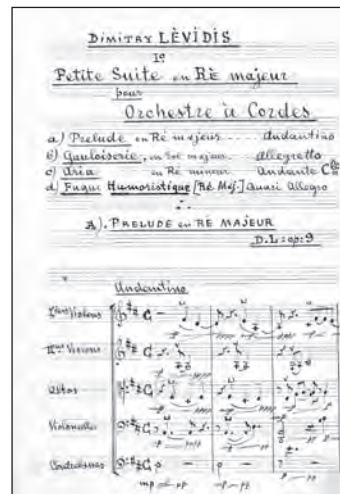 DIMITRY LÈVIDIS
Iº
Petite Suite en Rè majeur
pour
Orchestre à Cordes
a) Prelude en Re majeur .... Andantino
b) Gauloiserie, en Sol majeur - Allegretto
c) Aria en Re mineur Andante
d) Fugue Humoristique [Ré Maj.] Quasi Allegro
A). PRELUDE en RE MAJEUR
D.L: op: 9
Andantino
Violons
Violons
Altos
Violoncelles
Contrebasses
mp pp p pp